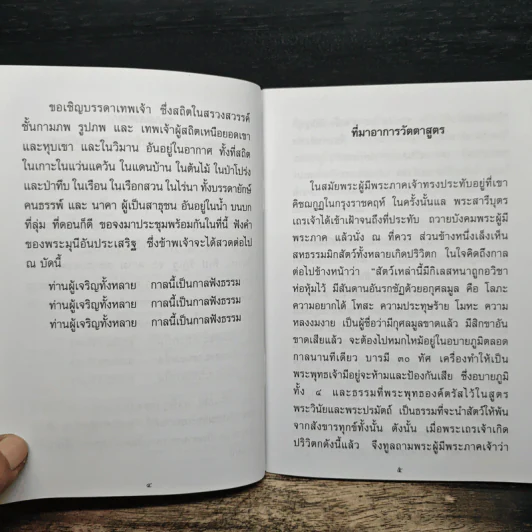 ขอเชิญบรรดาเทพเจ้า ซึ่งสถิตในสรวงสวรรค์
ชั้นกามภพ รูปภพ และ เทพเจ้าผู้สถิตเหนือยอดเขา
และหุบเขา และในวิมาน อันอยู่ในอากาศ ทั้งที่สถิต
ในเกาะในแว่นแคว้น ในแดนบ้าน ในต้นไม้ ในป่าโปร่ง
และป่าทึบ ในเรือน ในเรือกสวน ในไร่นา ทั้งบรรดายักษ์
คนธรรพ์ และ นาคา ผู้เป็นสาธุชน อันอยู่ในน้ำ บนบก
ที่ลุ่ม ที่ดอนก็ดี ขอจงมาประชุมพร้อมกันในที่นี้ ฟังคำ
ของพระมุนีอันประเสริฐ ซึ่งข้าพเจ้าจะได้สวดต่อไป
ณ บัดนี้
ท่านผู้เจริญทั้งหลาย กาลนี้เป็นกาลฟังธรรม
ท่านผู้เจริญทั้งหลาย กาลนี้เป็นกาลฟังธรรม
ท่านผู้เจริญทั้งหลาย กาลนี้เป็นกาลฟังธรรม
๔
ที่มาอาการวัตตาสูตร
ในสมัยพระผู้มีพระภาคเจ้าทรงประทับอยู่ที่เขา
คิชฌกูฏในกรุงราชคฤห์ ในครั้งนั้นแล พระสารีบุตร
เถรเจ้าได้เข้าเฝ้าจนถึงที่ประทับ ถวายบังคมพระผู้มี
พระภาค แล้วนั่ง ณ ที่ควร ส่วนข้างหนึ่งเล็งเห็น
สหธรรมมิกสัตว์ทั้งหลายเกิดปริวิตก ในใจคิดถึงกาล
ต่อไปข้างหน้าว่า “สัตว์เหล่านี้มีกิเลสหนาถูกอวิชา
ท่อหุ้มไว้ มีสันดานอันรกชัฏด้วยอกุศลมูล คือ โลภะ
ความอยากได้ โทสะ ความประทุษร้าย โมหะ ความ
หลงงมงาย เป็นผู้ชื่อว่ามีกุศลมูลขาดแล้ว มีสิกขาอัน
ขาดเสียแล้ว จะต้องไปหมกไหม้อยู่ในอบายภูมิตลอด
กาลนานทีเดียว บารมี ๓๐ ทัศ เครื่องทำให้เป็น
พระพุทธเจ้ามีอยู่จะห้ามและป้องกันเสีย ซึ่งอบายภูมิ
ทั้ง ๔ และธรรมที่พระพุทธองค์ตรัสไว้ในสูตร
พระวินัยและพระปรมัตถ์ เป็นธรรมที่จะนำสัตว์ให้พ้น
จากสังขารทุกข์ทั้งนั้น ดังนั้น เมื่อพระเถรเจ้าเกิด
ปริวิตกดังนี้แล้ว จึงทูลถามพระผู้มีพระภาคเจ้าว่า
๕